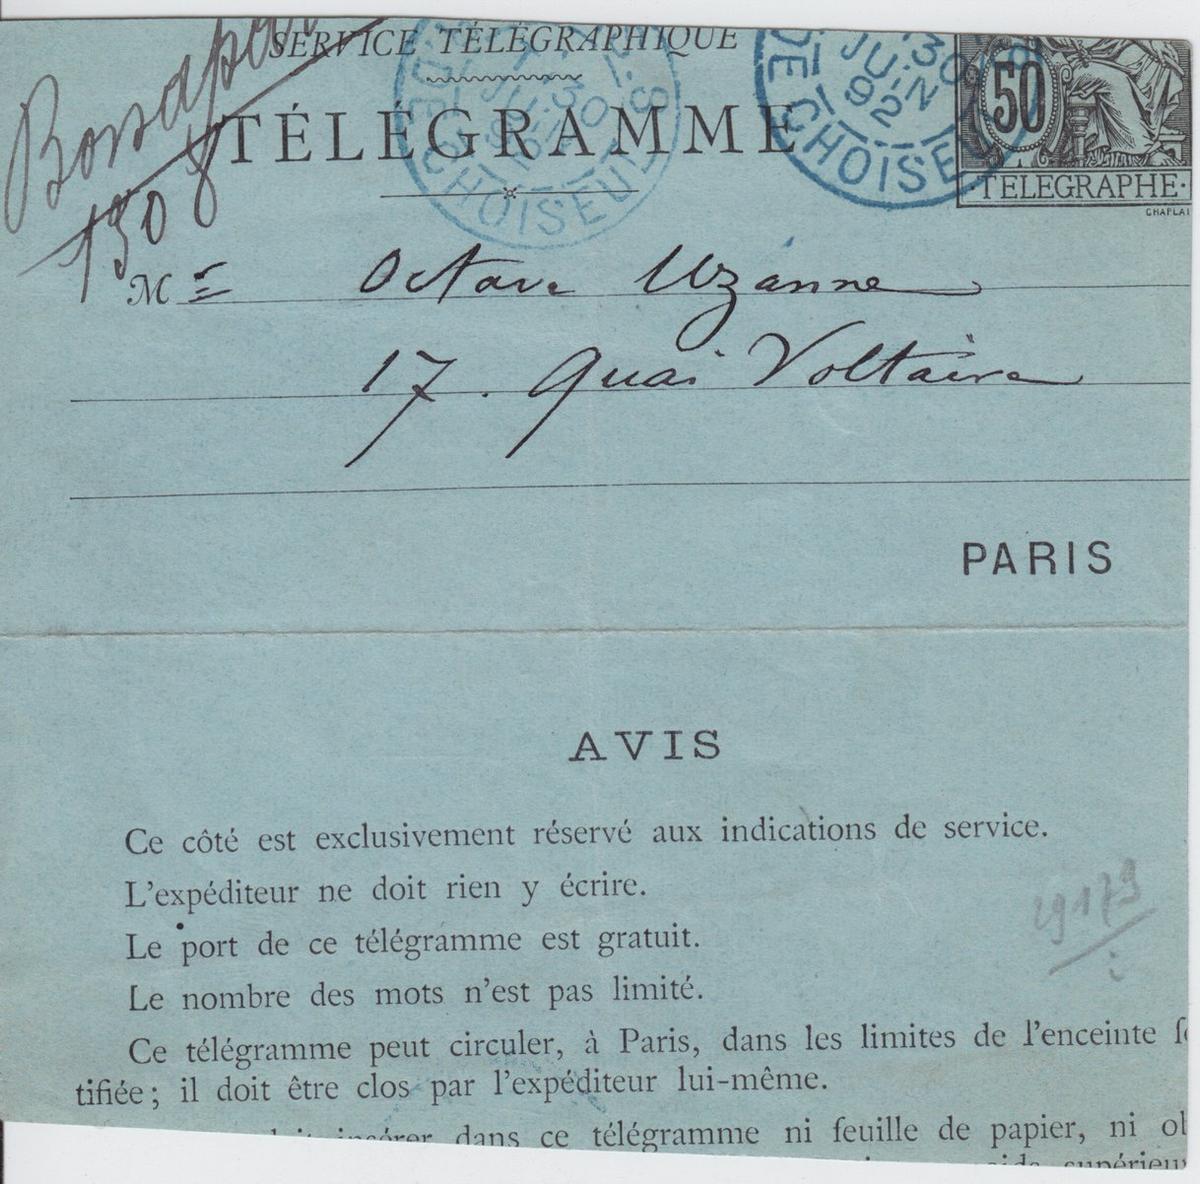 SERVICE TÉLÉGRAPHIQUE
TÉLÉGRAMME
DE CHOISEUL
JUIN
92
DE CHOISEUL
30
JUIN
92
50
TELEGRAPHE
CHAPLAI
1308
M Octave Uzanne
17. Quai Voltaire
PARIS
AVIS
Ce côté est exclusivement réservé aux indications de service.
L'expéditeur ne doit rien y écrire.
Le port de ce télégramme est gratuit.
Le nombre des mots n'est pas limité.
Ce télégramme peut circuler, à Paris, dans les limites de l'enceinte f
tifiée; il doit être clos par l'expéditeur lui-même.
insérer dans ce télégramme ni feuille de papier, ni ob
supérieur
29179